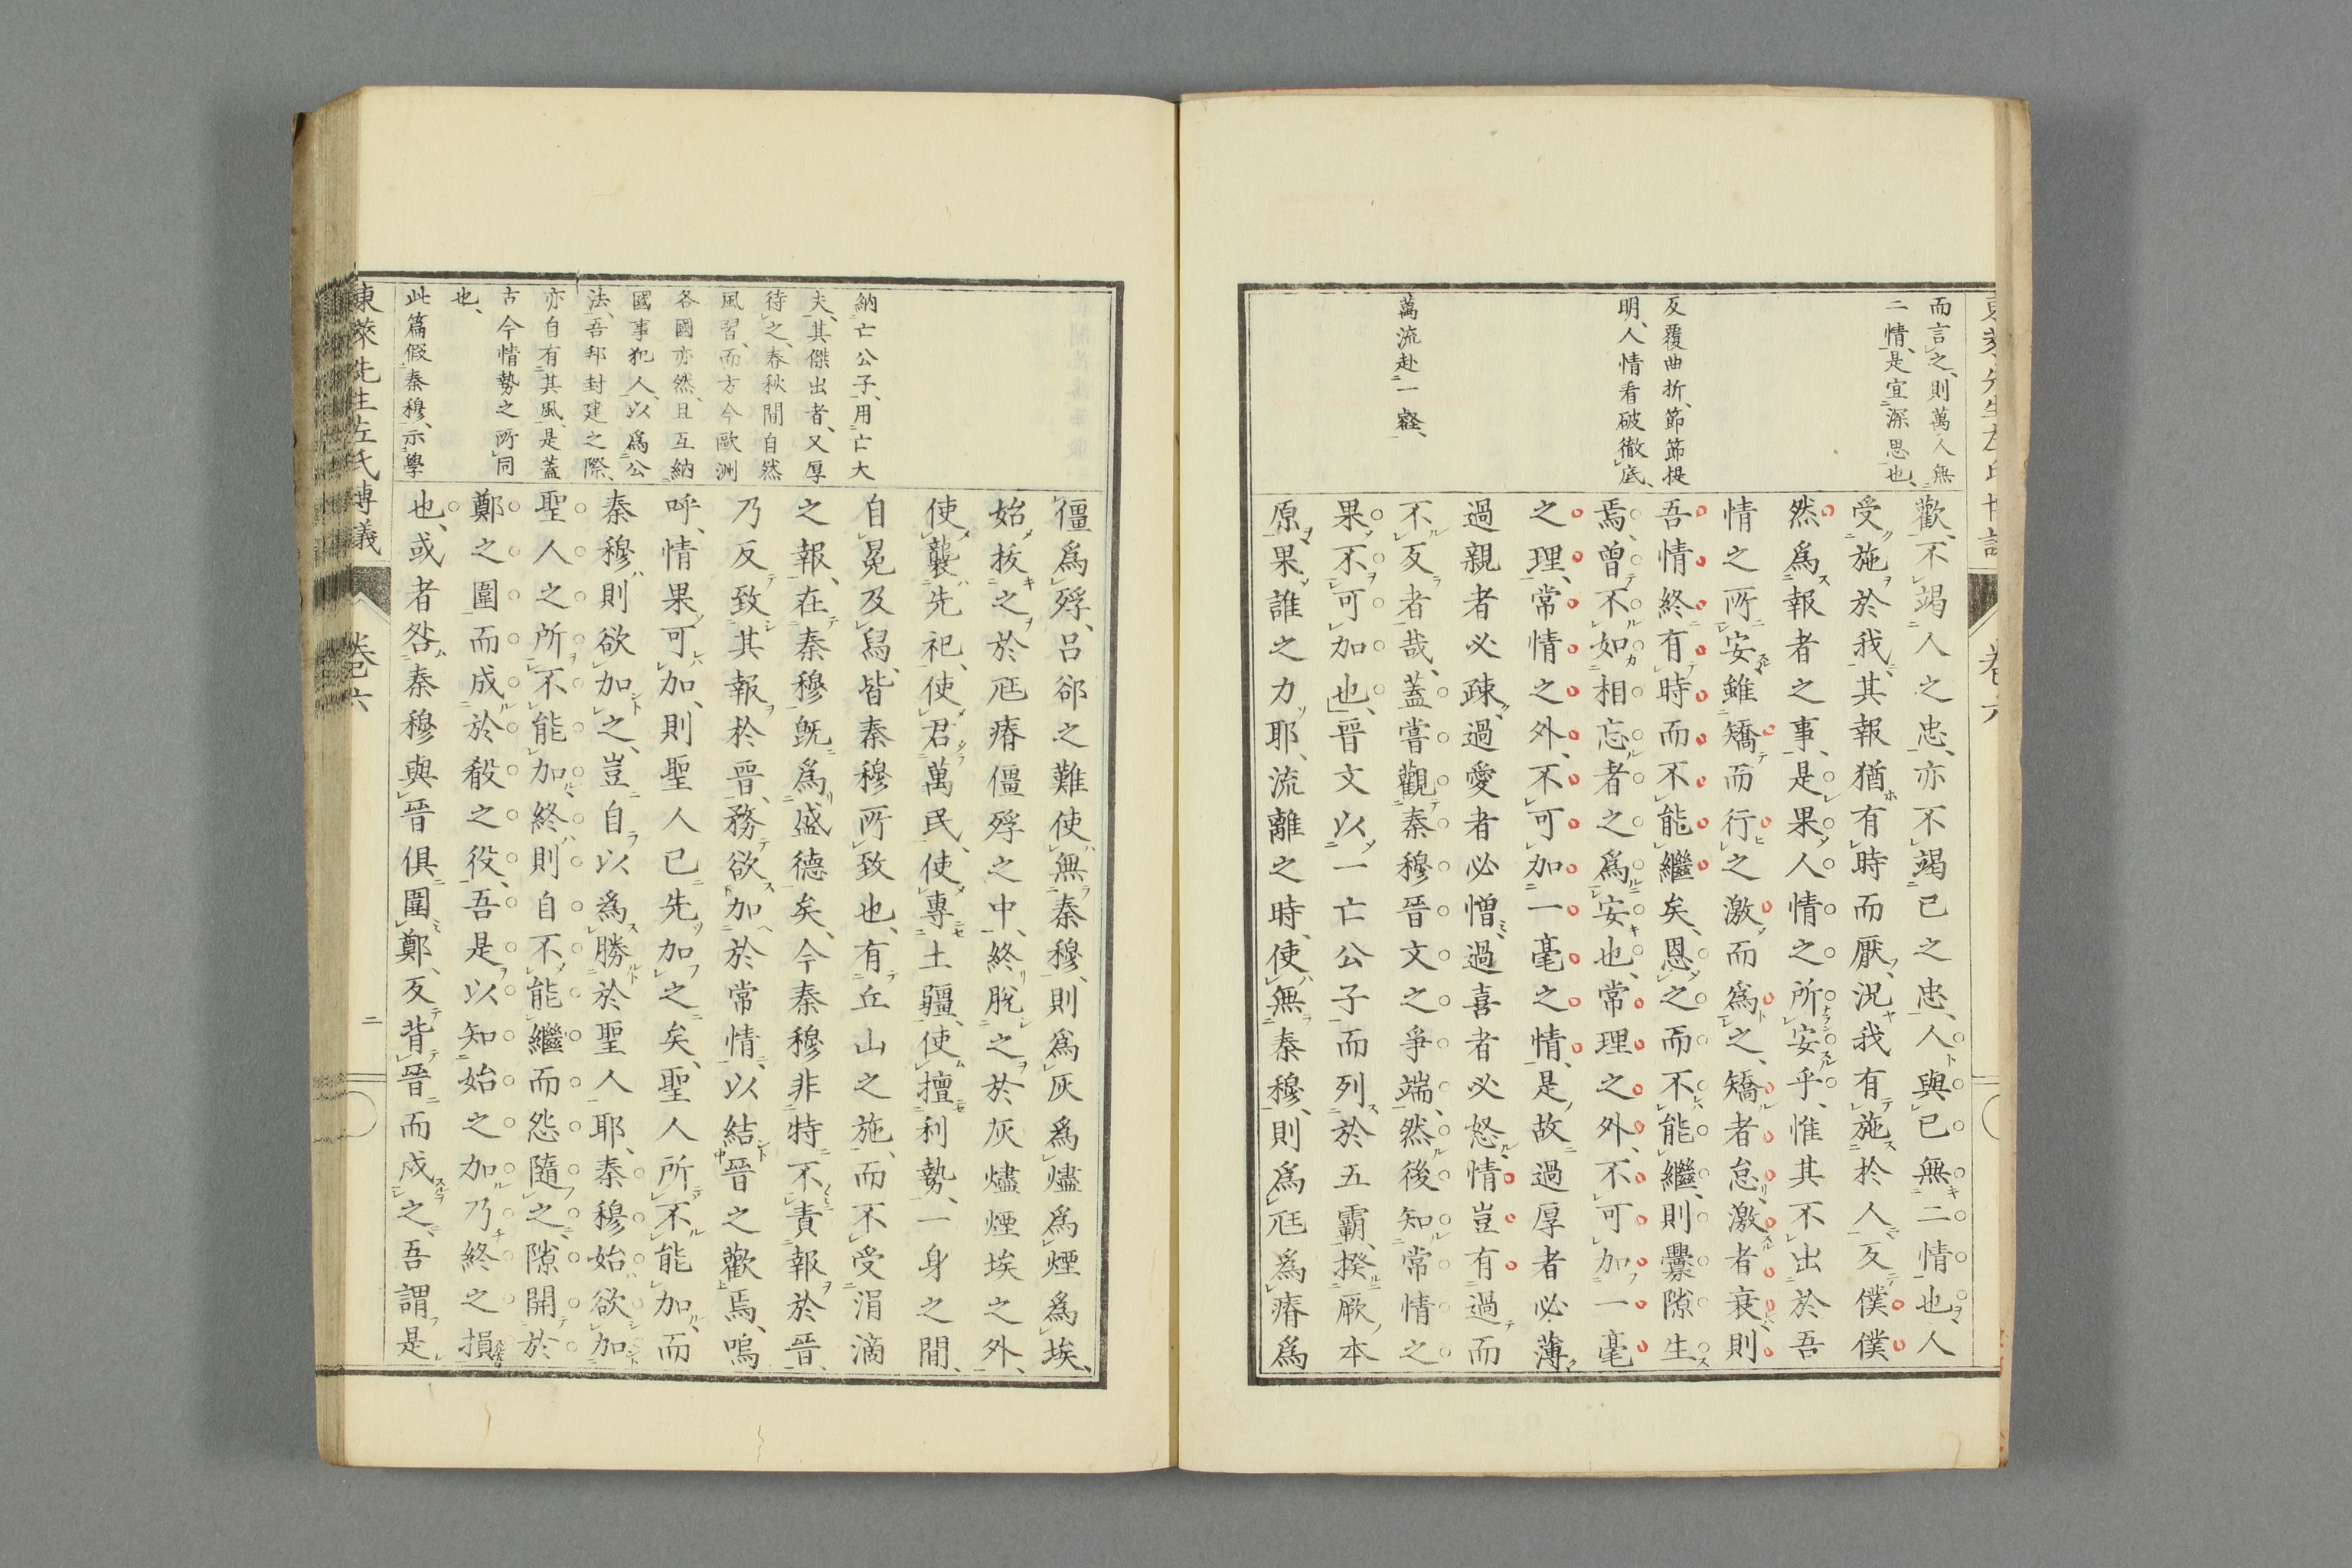 而言之、則萬人無
二情、是宜深思也、
反覆曲折、節節提
明、人情看破徹底、
萬流赴一壑、
歡、不竭人之忠、亦不竭己之忠、人與己無二情也人
受施於我、其報猶有時而厭、況我有施於人、反僕僕
然爲報者之事、是果人情之所安乎、惟其不出於吾
情之所安雖矯而行之激而爲之、矯者怠、激者衰、則
吾情終有時而不能繼矣、恩之而不能繼、則釁隙生
焉、曾不如相忘者之爲安也、常理之外、不可加一毫
之理、常情之外、不可加一毫之情、是故過厚者必薄
過親者必疎、過愛者必憎、過喜者必怒、情豈有過而
不反者哉、蓋嘗觀秦穆晉文之爭端、然後知常情之
果不可加也、晉文以一亡公子而列於五霸、揆厥本
原果誰之力耶、流離之時、使無秦穆、則爲尫爲瘠爲
納亡公子、用亡大
夫、其傑出者、又厚
待之、春秋間自然
風習、而方今歐洲
各國亦然、且互納
國事犯人、以爲公
法、吾邦封建之際、
亦自有其風、是蓋
古今情勢之所同
也、
此篇假秦穆、示學
僵爲殍、呂郤之難使無秦穆、則爲灰爲燼爲煙爲埃、
始拔之於尫瘠僵殍之中、終脫之於灰燼煙埃之外、
使襲先祀、使君萬民、使專土疆、使擅利勢、一身之間、
自冕及舄、皆秦穆所致也、有丘山之施、而不受涓滴
之報、在秦穆既爲盛德矣、今秦穆非特不責報於晉、
乃反致其報於晉、務欲加於常情、以結晉之歡焉、嗚
呼、情果可加、則聖人已先加之矣、聖人所不能加、而
秦穆則欲加之、豈自以爲勝於聖人耶、秦穆始欲加
聖人之所不能加、終則自不能繼而怨隨之、隙開於
鄭之圍而成於殽之役、吾是以知始之加乃終之損
也、或者咎秦穆與晉俱圍鄭、反背晉而戍之、吾謂是
東萊先生左氏博議
卷六
二